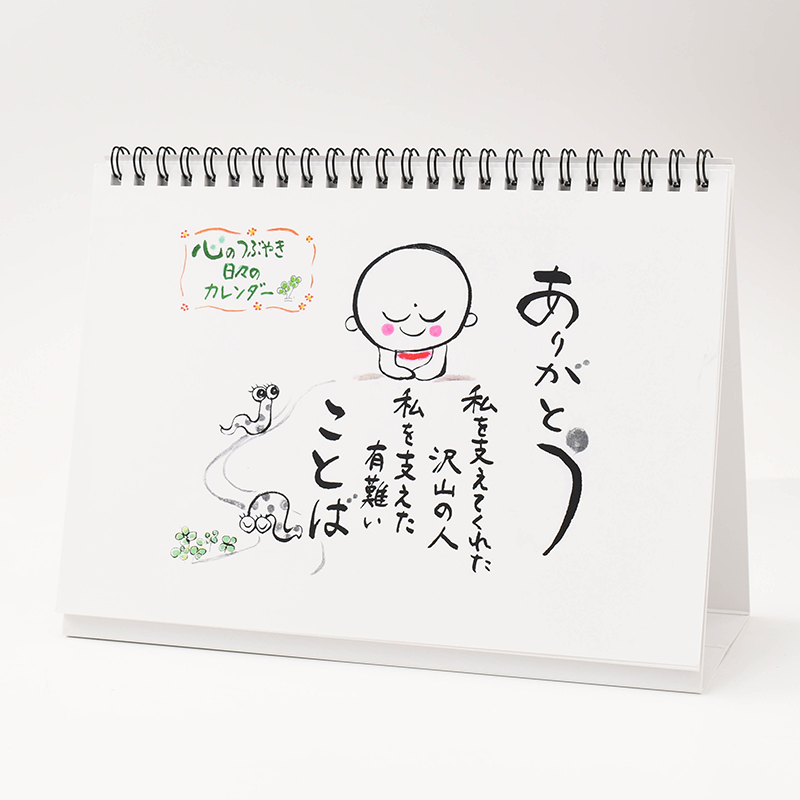 心のつぶやき
日々の
カレンダー
ありがとう
私を支えてくれた
沢山の人
私を支えた
有難い
ことば